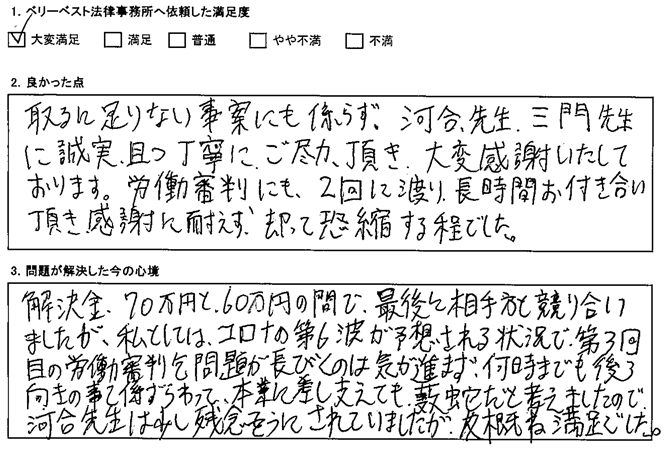 1. ベリーベスト法律事務所へ依頼した満足度
大変満足 満足 普通 やや不満 不満
2. 良かった点
取るに足りない事案にも係らず、河合先生、三門先生
に誠実、且つ丁寧に、ご尽力、頂き、大変感謝いたして
おります。労働審判にも、2回に渡り、長時間お付き合い
頂き、感謝に耐えず、却って恐縮する程でした。
3. 問題が解決した今の心境
解決金、70万円と、60万円の間で、最後に相手方と競り合い
ましたが、私としては、コロナの第6波が予想される状況で、第3回
目の労働審判迄問題が長びくのは気が進まず、何時までも後ろ
向きの事で係ずらわって、本業に差し支えても、藪蛇だと考えましたので、
河合先生は少し残念そうにされていましたが、大概ね満足でした。